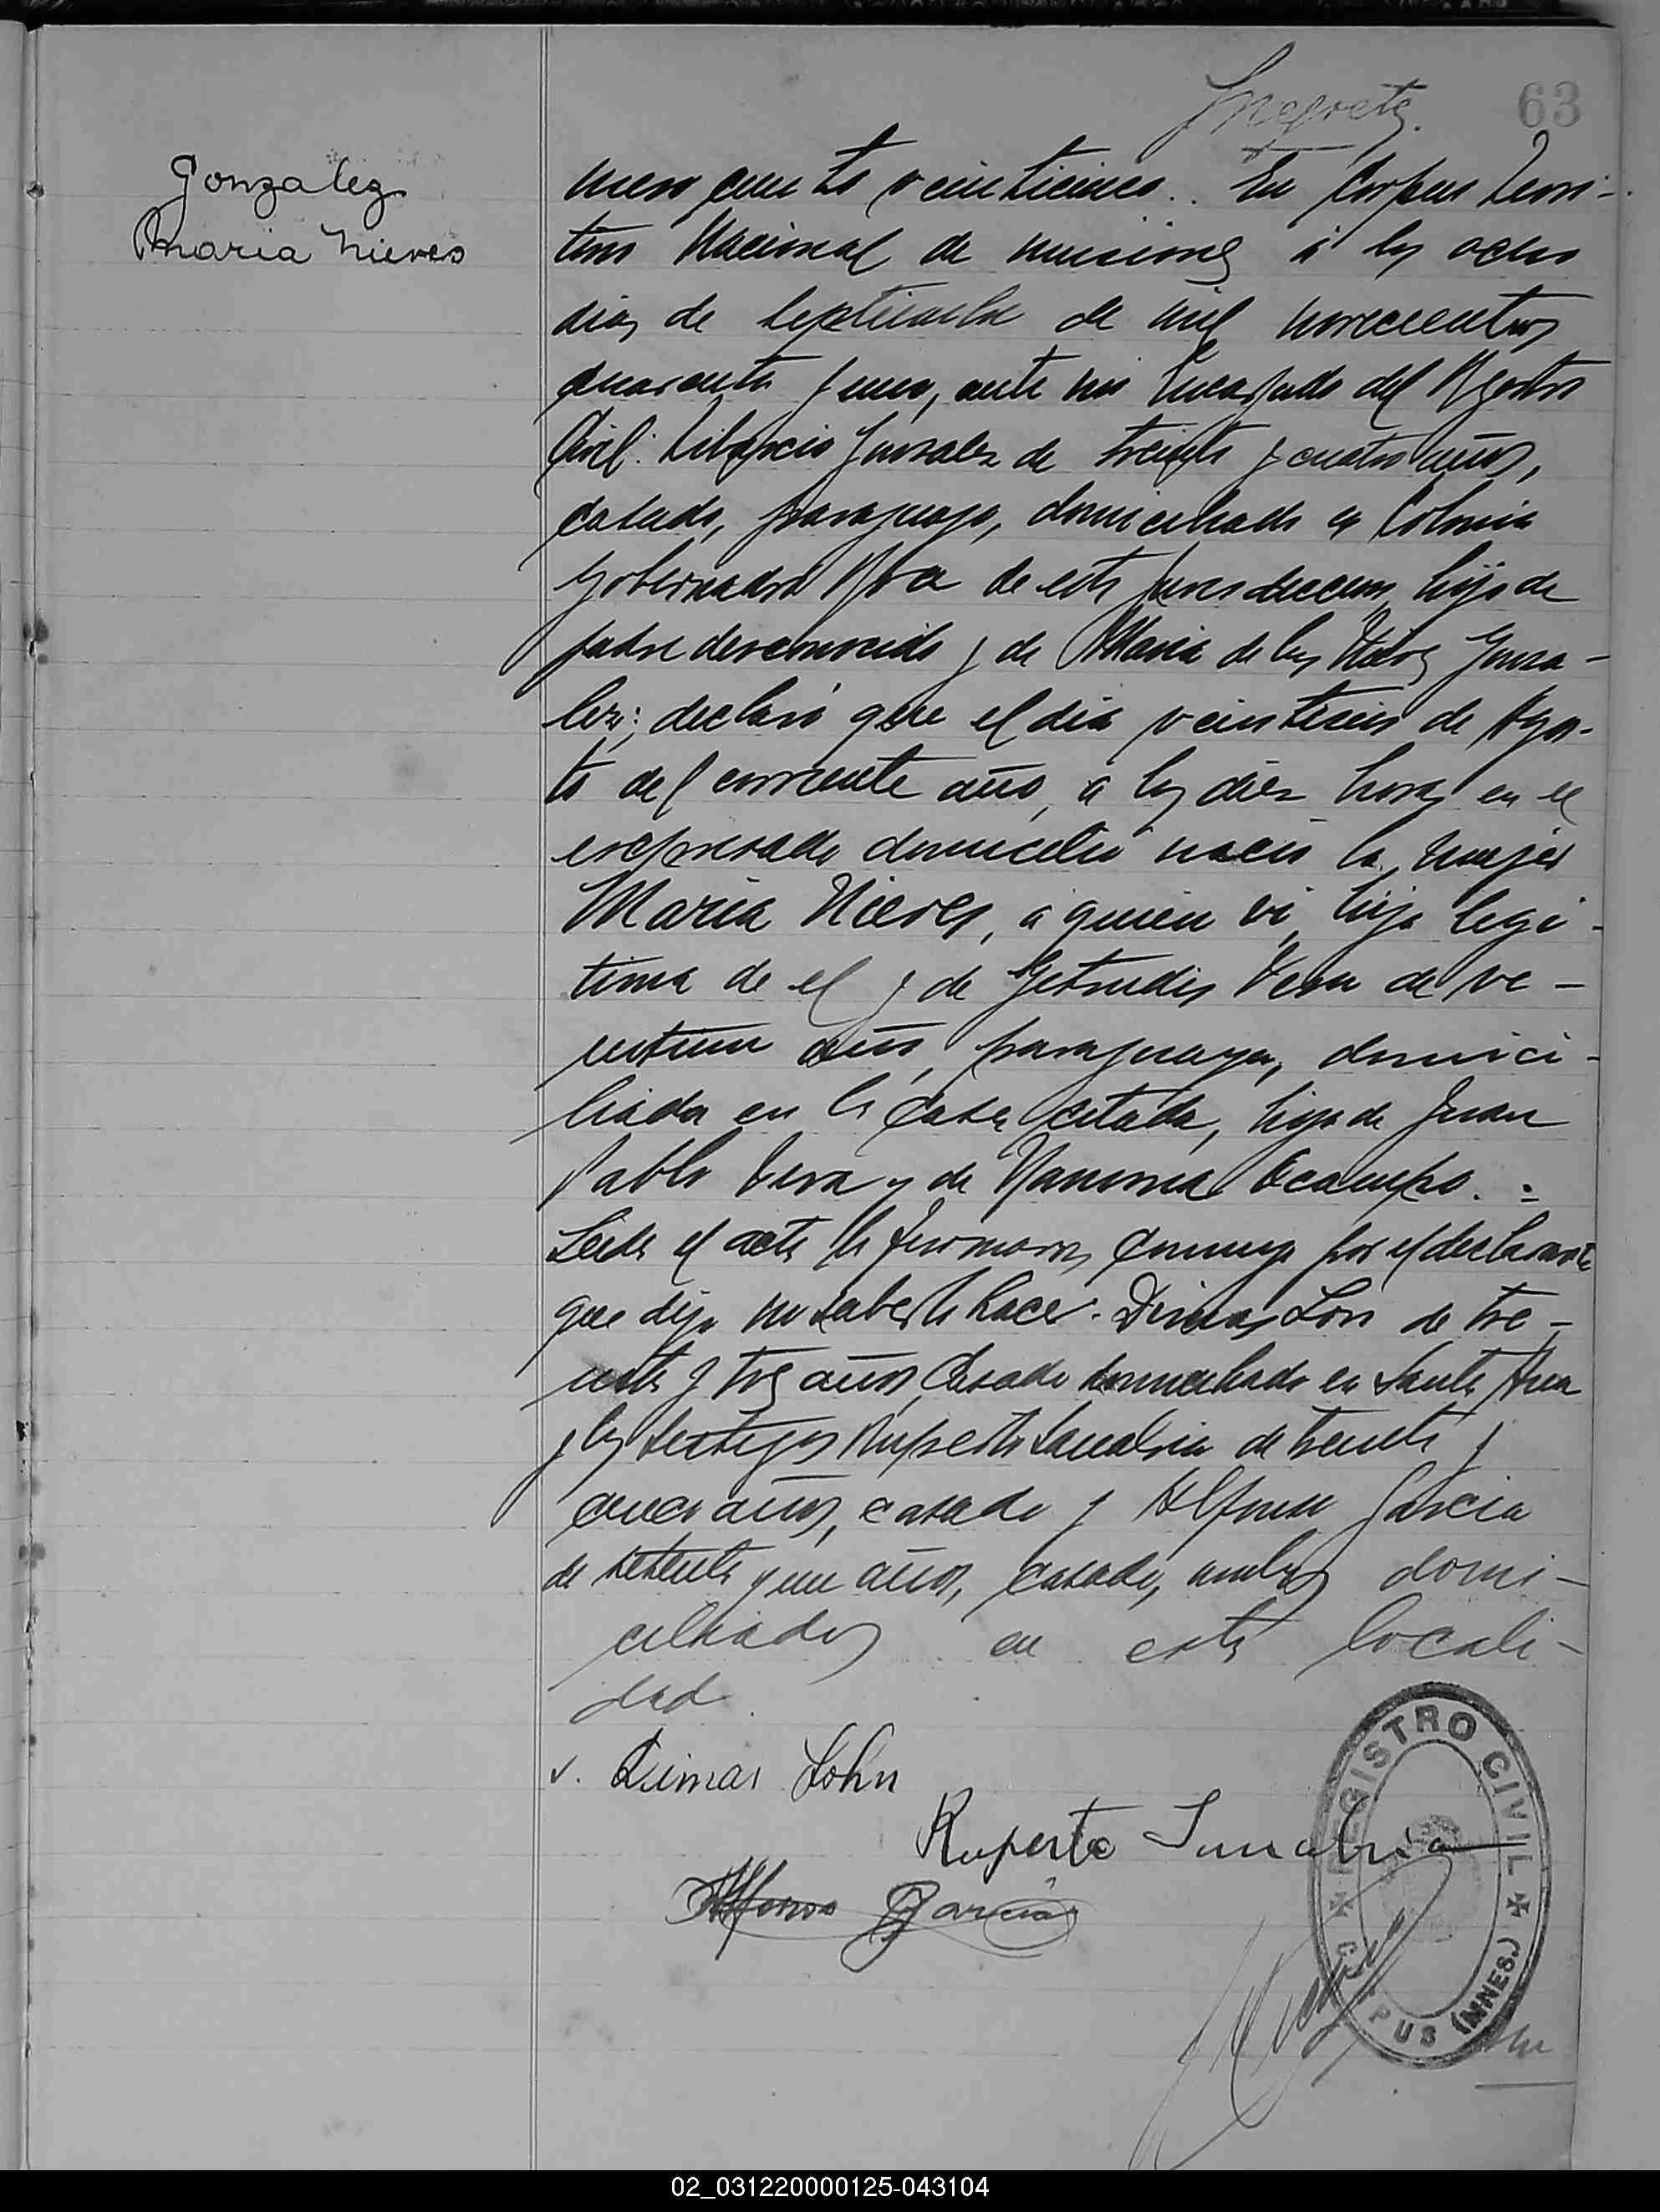 63
Gonzalez
Maria Nieves
mero ciento veinticinco.. En Corpus Terri-
torio Nacional de Misiones á los ocho
dias de Septiembre de mil novecientos
cuarenta y uno, ante mi Encargado del Registro
Civil: Gonzalez de treinta y cuatro años,
casado, paraguayo, domiciliado en Colonia
Gobernador Roca de esta jurisdiccion, hijo de
padre desconocido y de Maria de las Nieves Gonza-
lez; declaró que el dia de Agos-
to del corriente año, á las diez horas en el
expresado domicilio nació la mujer
Maria Nieves, á quien vi, hija legi-
tima de el y de Getrudis Vera de ve-
intiun años, paraguaya, domici-
liada en la casa citada, hija de Juan
Pablo Vera y de Ramona Ocampo. =
Leida el acta la firmaron, conmigo por el declarante
que dijo no saberlo hacer. Dimas de tre-
inta y tres años, Casado domiciliado en Santa Ana
y los testigos Ruperto Sanabria de treinta y
cinco años, casado y Alfonso Garcia
de setenta y un años, casado, ambos domi-
ciliados en esta locali-
dad.
Dimas John
Ruperto Sanabria
Alfonso Garcia
REGISTRO CIVIL
CORPUS (MNES.)
02_031220000125-043104